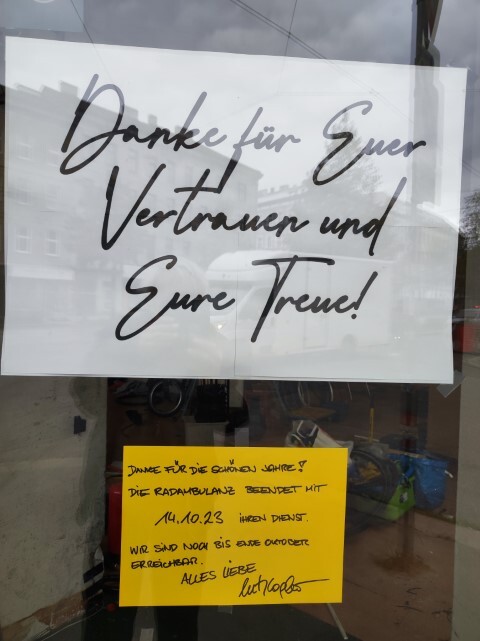 Danke für Euer
Vertrauen und
Eure Treue!
DANKE FÜR DIE SCHÖNEN JAHRE!
DIE RADAMBULANZ BEENDET MIT
14.10.23 IHREN DIENST.
WIR SIND NOCH BIS ENDE OKTOBER
ERREICHBAR.
ALLES LIEBE